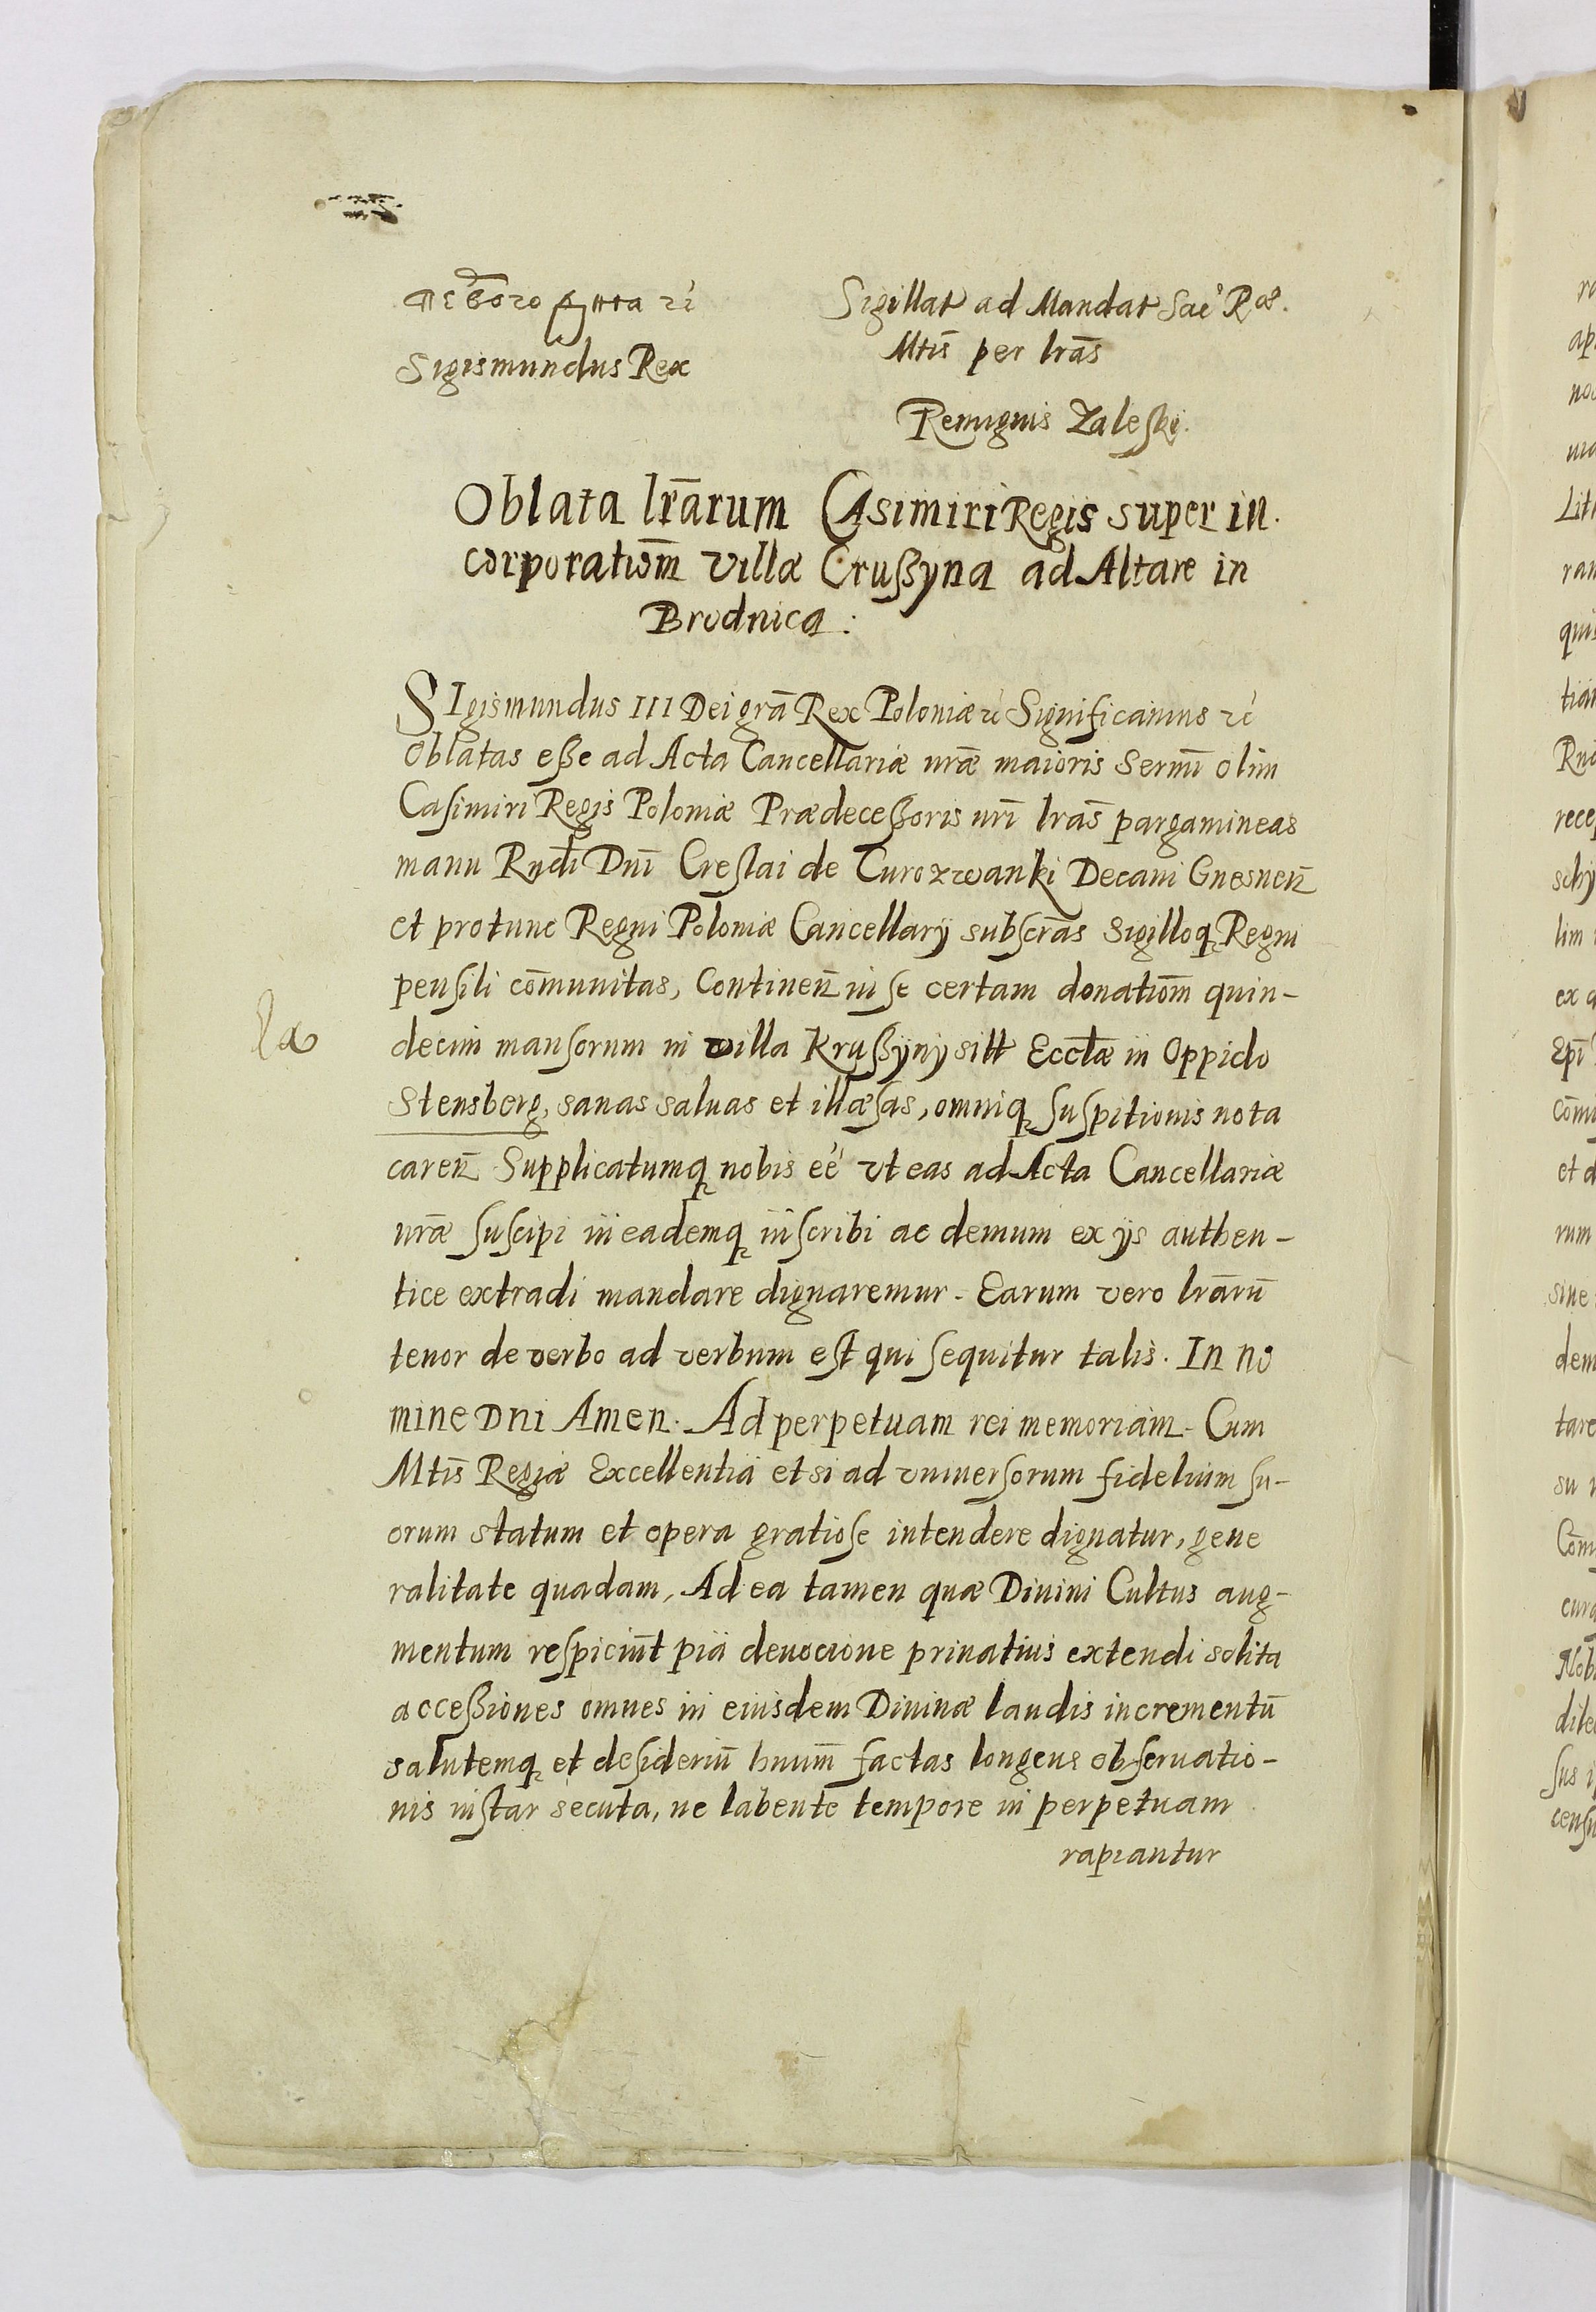 Sigillat ad Mandat Sac Rae.
Mtis̄ per lrās
Sigismundus Rex
Remiguis Zaleski.
Oblata lrārum Casimiri Regis super in
corporatiōm villæ Crußyna ad Altare in
Brodnica:
SIgismundus III Dei grā Rex Poloniæ rc̀ Significamus rc̀
oblatas eße ad Acta Cancellariæ nrāe maioris Sermī olim
Casimiri Regis Poloniæ Prædeceßoris nrī lrās pargamineas
manu Rndī Dnī Creslai de Curozwanki Decani Gnesnen̄
et protunc Regni Poloniæ Cancellarij subscrās Sigilloq Regni
pensili cōmunitas, Continen̄ in se certam donatiōm quin-
decim mansorum in villa Krußyny sitt Eccłæ in Oppido
Stensberg, sanas saluas et illæsas, omniq suspitionis nota
caren̄ Supplicatumq nobis eé vt eas ad Acta Cancellariæ
nrāe suscipi in eademq inscribi ac demum ex ijs authen-
tice extradi mandare dignaremur. Earum vero lrārū
tenor de verbo ad verbum est qui sequitur talis. In no
mine Dni Amen. Ad perpetuam rei memoriam. Cum
Mtis̄ Regiæ Excellentia etsi ad vniuersorum fidelium su-
orum statum et opera gratiose intendere dignatur, gene
ralitate quadam, Ad ea tamen quæ Diuini Cultus aug-
mentum respiciūt pia deuocione priuatius extendi solita
acceßiones omnes in eiusdem Diuinæ laudis incrementū
salutemq et desideriū hnum̄ factas longeus obseruatio-
nis instar secuta, ne labente tempore in perpetuam
rapiantur